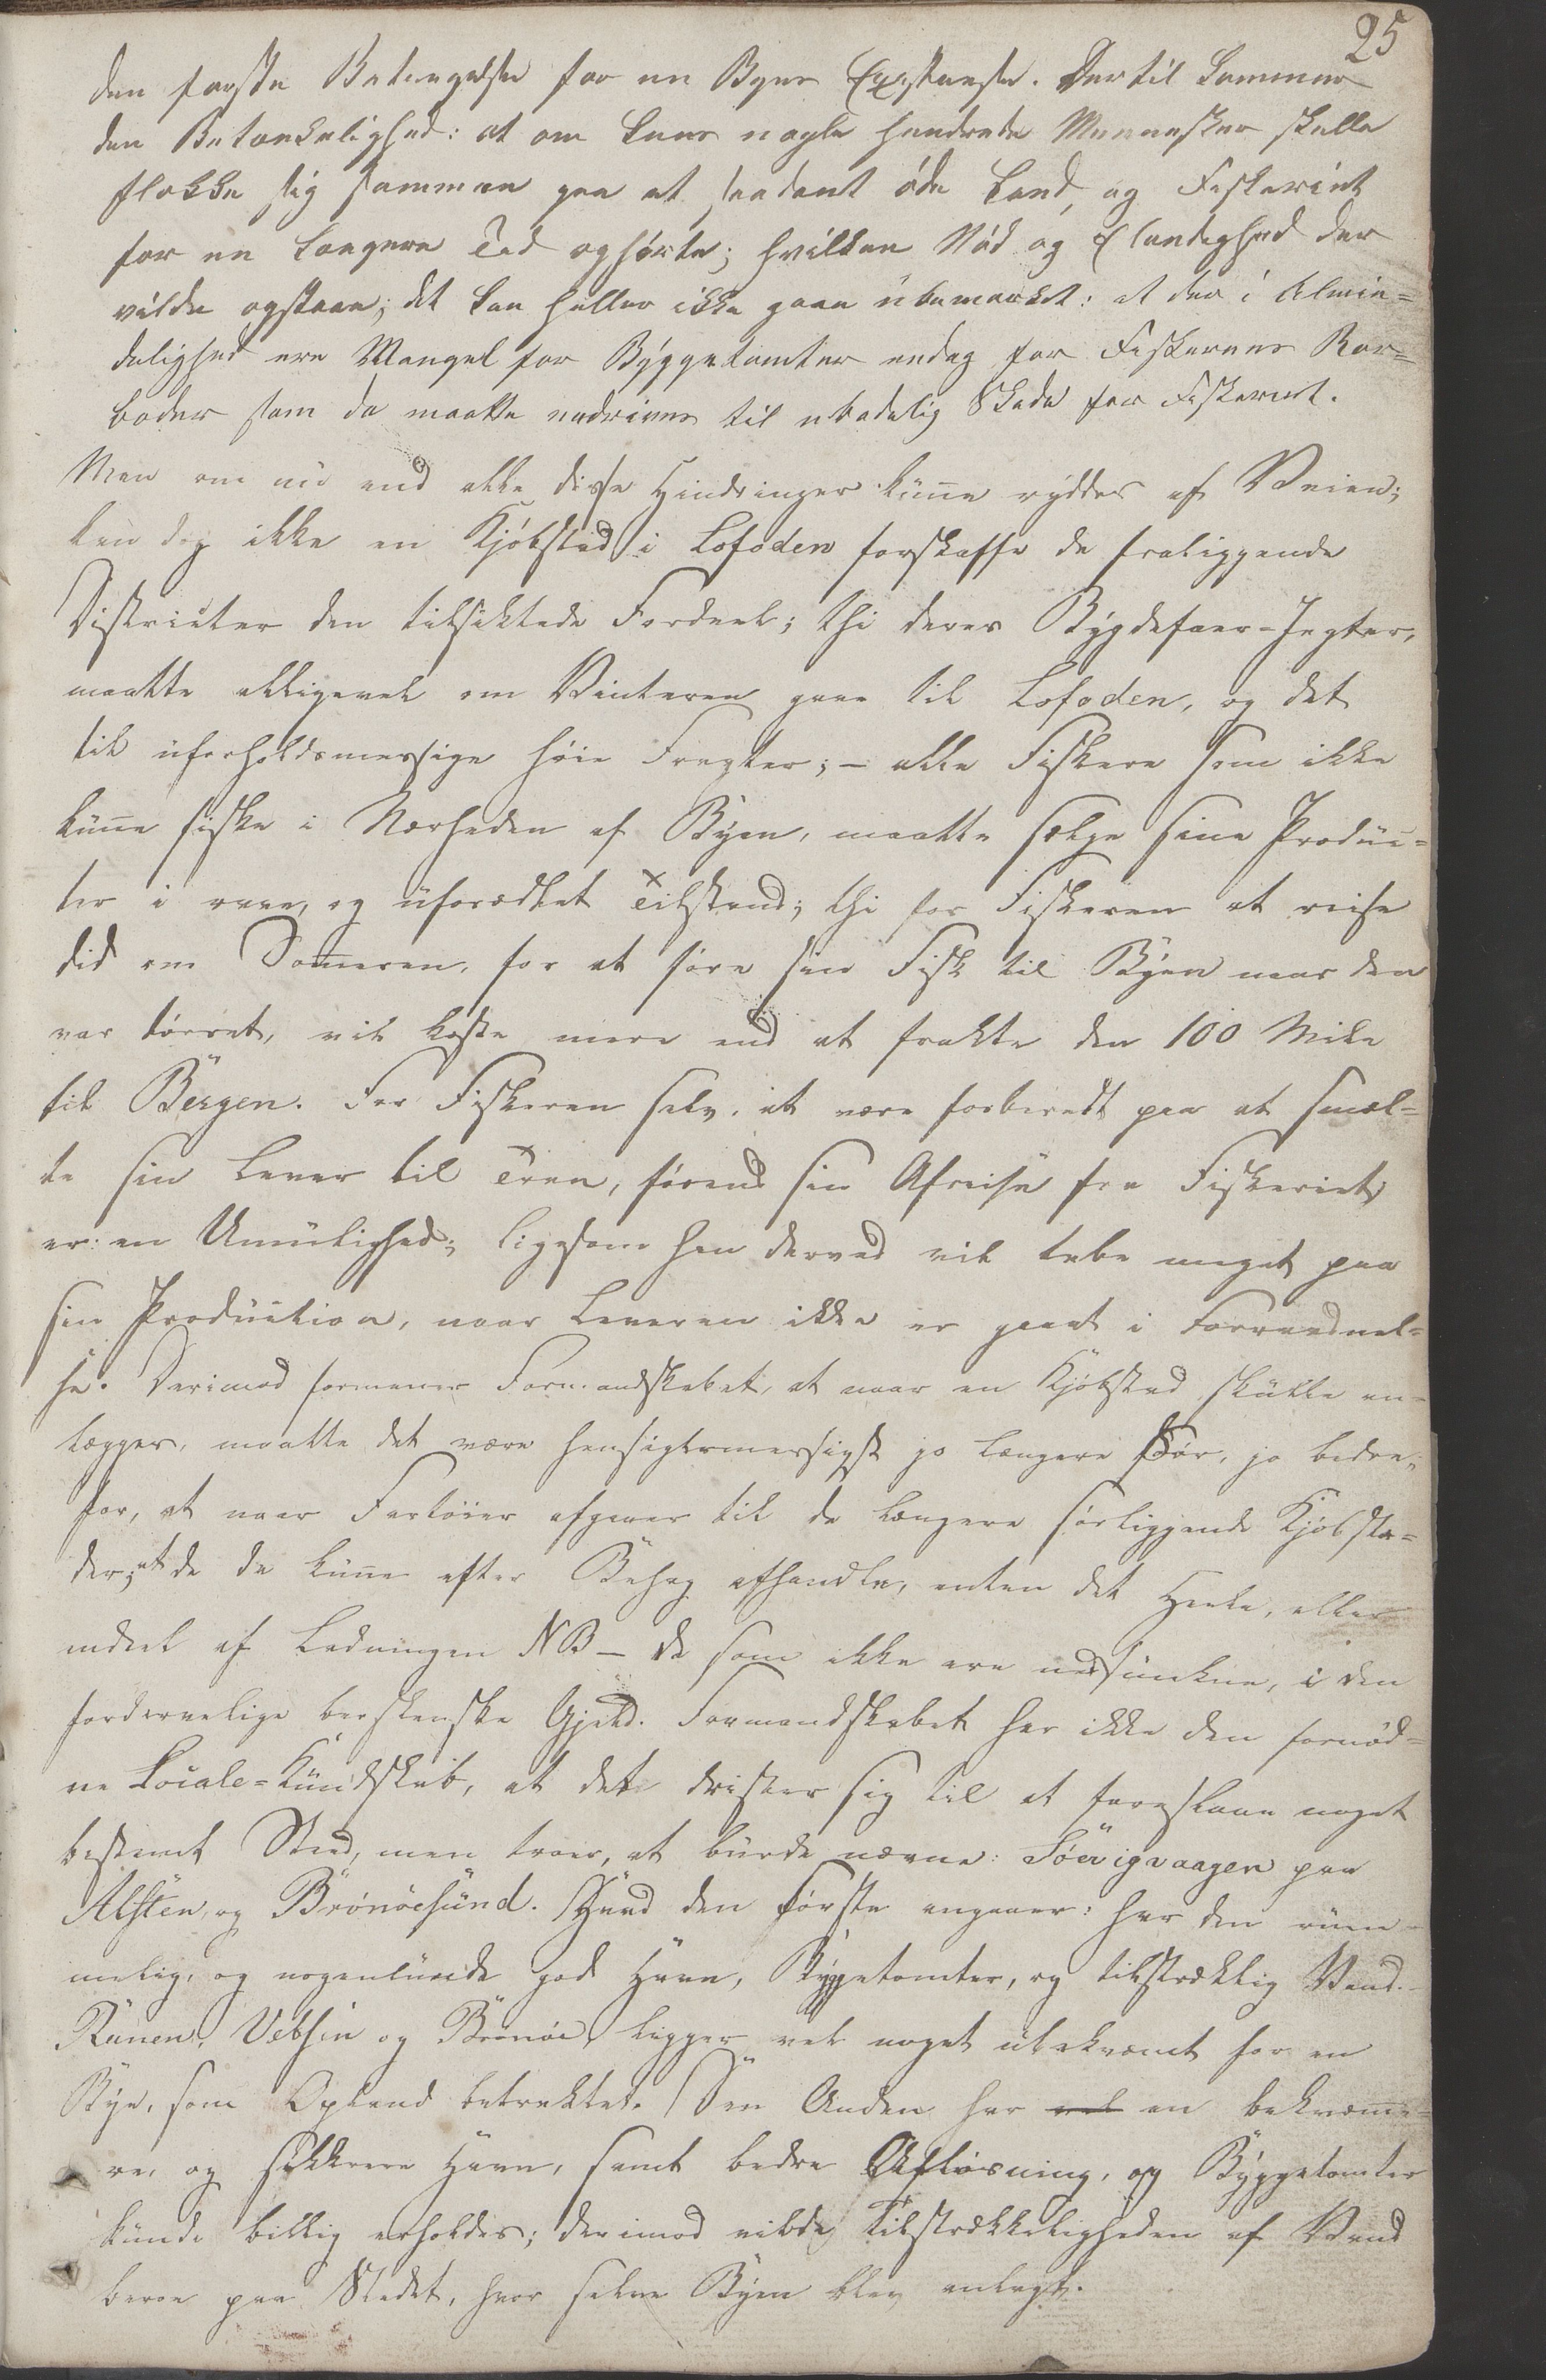 25
den første Betingelse for en Byes Existense. Dertil kommer
den Betænkelighed: at om kuns nogle hundrede Mennesker skulle
flokke sig sammen paa et saadant øde Land, og Fiskeriet
for en længere Tid ophørte; hvilken Nød og Elendighed der
vilde opstaae; det kan heller ikke gaae ubemærket: at der i Almin=
delighed ere Mangel for Byggetomter endog for Fiskernes Ror=
boder som da maatte nedrives til ubodelig Skade for Fiskeriet.
Men om nu end alle disse Hindringer kunne ryddes af Veien;
kan dog ikke en Kjøbstad i Lofoden forskaffe de fraliggende
Districter den tilsiktede Fordeel; thi deres Bygdefaer=Jegter,
maatte alligevel om Vinteren gaae til Lofoden, og det
til uforholdsmessige høie Fragter; – alle Fiskere som ikke
kunne fiske i Nærheden af Byen, maatte sælge sine Produc=
ter i raae, og uforædlet Tilstand; thi for Fiskeren at reise
did om Someren, for at føre sin Fisk til Byen naar den
var tørret, vil koste mere end at frakte den 100 Mile
til Bergen. For Fiskeren selv, at være forberedt paa at smel=
te sin Lever til Tran, førend sin Afreise fra Fiskeriet,
er: en Umulighed; ligesom han derved vil tabe meget paa
sin Production, naar Leveren ikke er gaaet i Forraadnel=
se. Derimod formener Formandskabet, at naar en Kjøbstad skulle an=
lægges, maatte det være hensigtsmessigst jo længere Sør, jo bedre;
for, at naar Fartøier afgaaer til de længere sørliggende Kjøbstæ=
der; at de da kunne efter Behag afhandle, enten det Heele, eller
endeel af Ladningen NB – de som ikke ere nedsunkne, i den
fordervelige bergenske Gjeld. Formandskabet har ikke den fornød=
ne Locale=Kundskab, at det drister sig til at foreslaae noget
bestemt Sted, men troer, at burde nævne: Söevigvaagen paa
Alsten, og Brönöesund. Hvad den første angaaer: har den rüm=
melig, og nogenlunde god Havn, Byggetomter, og tilstrækklig Vand.
Ranen, Vebsen og Brönöe, ligger vel noget ubekvæmt for en
Bye, som Opland betraktet. Den Anden har vel en bekvæmme=
re, og sikkrere Havn, samt bedre Afløsning, og Byggetomter
kunde billig erholdes; derimod vilde Tilstrækkeligheden af Vand
beroe paa Stedet, hvor selve Byen blev anlagt.